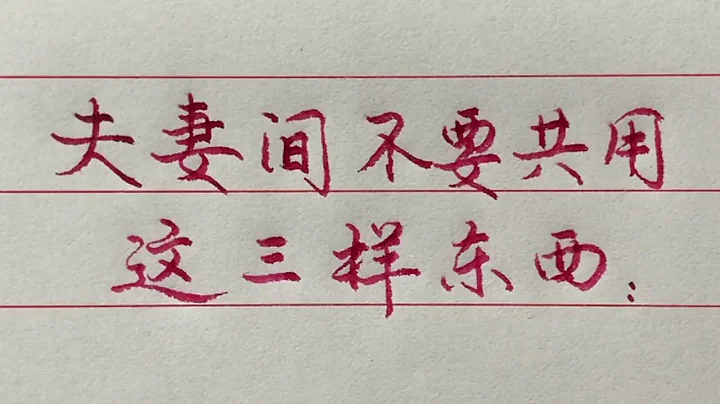 夫妻间不要共用
这三样东西：